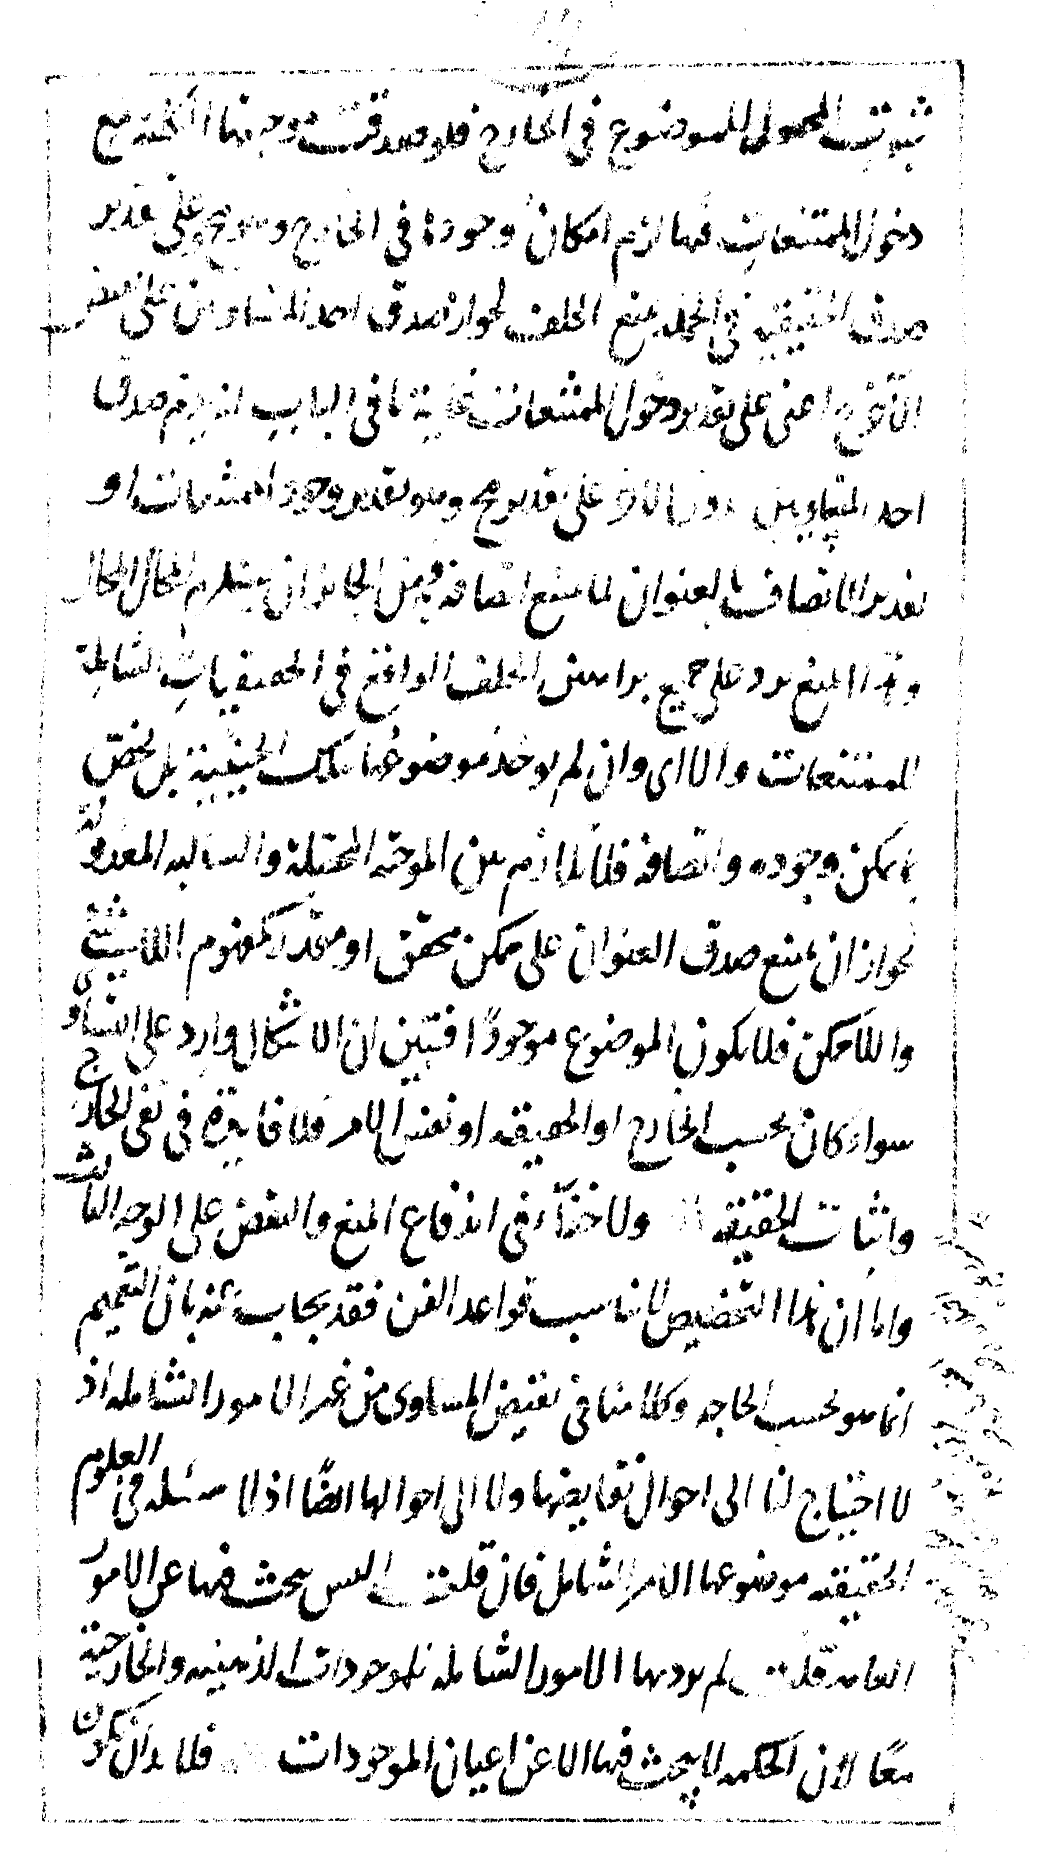 ثبوت المحمول للموضوع في الخارج فلو صدقت موجبتها الكلية مع
دخول الممتنعات فيها لزم امكان وجودها في الخارج وهو مح وعلى تقدير
صدق الحقيقية في الجملة يمنع الخلف لجواز صدق احد المتساويين على نقيض
الآخر اعني على تقدير دخول الممتنعات غاية ما في الباب انه يلزم صدق
احد المتساويين دون الآخر على تقدير مح وهو تقدير وجود الممتنعات او
تقدير الاتصاف بالعنوان لما يمتنع اتصافه به ومن الجائز ان يستلزم المحال المحال
وهذا المنع يرد على جميع براهين الخلف الواقع في الحقيقيات الشاملة
للممتنعات والا اي وان لم يوخذ موضوعها بتلك الحيثية بل يختص
بما يمكن وجوده واتصافه فلا تلازم بين الموجبة المحصلة والسالبة المعدولة
لجواز ان يمتنع صدق العنوان على ممكن محقق او مقدر كمفهوم اللاشيء
واللاممكن فلا يكون الموضوع موجودًا فتبين ان الاشكال وارد على التساوي
سواء كان بحسب الخارج او الحقيقة او نفس الامر فلا فايدة في نفي الخارج
واثبات الحقيقة ولا خفاء في اندفاع المنع والنقض على الوجه الثالث
واما ان هذا التخصيص لا يناسب قواعد الفن فقد يجاب عنه بان التعميم
انما هو بحسب الحاجه وكلامنا في نقيض المساوي من غير الامور الشامله اذ
لا احتياج لنا الى احوال نقايضها ولا الى احوالها ايضًا اذ لا مسئله في العلوم
الحقيقه موضوعها الامر الشامل فان قلت اليس يبحث فيها عن الامور
العامه قلت لم يرد بها الامور الشامله للموجودات الذهنيه والخارجية
معًا لان الحكمه لا يبحث فيها الا عن اعيان الموجودات فلا بد ان يكون